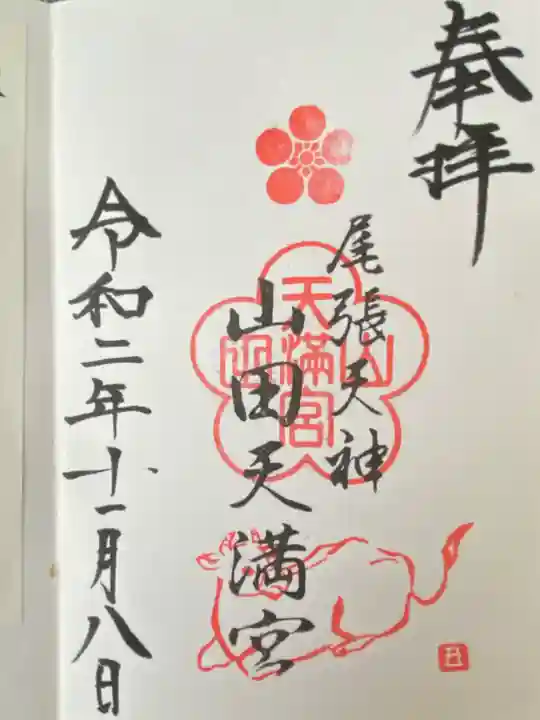 奉拝
尾張天神
山田天満宮
山田
天満宮
令和二年十一月八日
丑